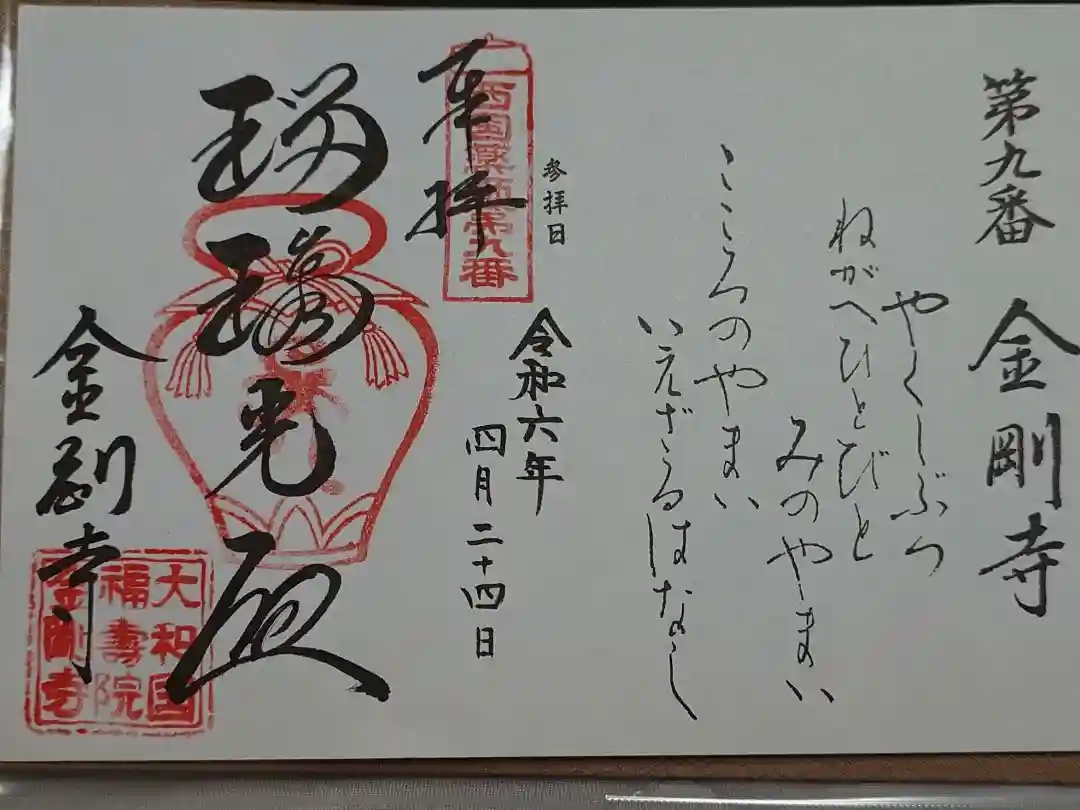 第九番 金剛寺
やくしぶつ
ねがへひとびと
みのやまい
こころのやまい
いえざるはなし
参拝日
令和六年
四月二十四日
奉拝
西国薬師第九番
瑠璃光殿
金剛寺
大和国
福壽院
金剛寺